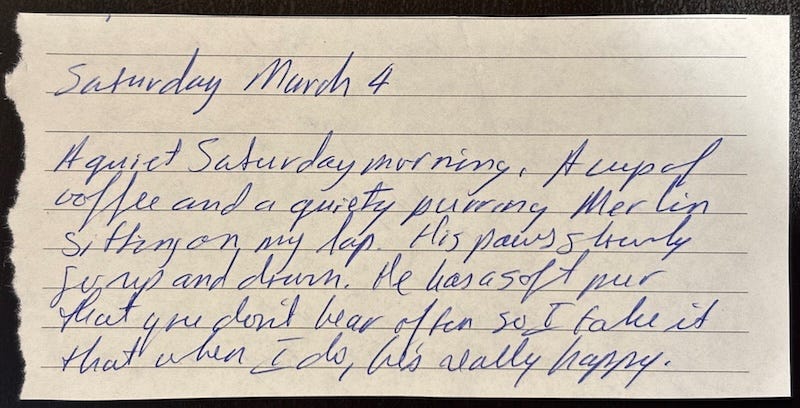 Saturday March 4
A quiet Saturday morning. A cup of
coffee and a quiety purring Merlin
sitting on my lap. His paws slowly
go up and down. He has a soft purr
that you don't hear often so I take it
that when I do, he's really happy.